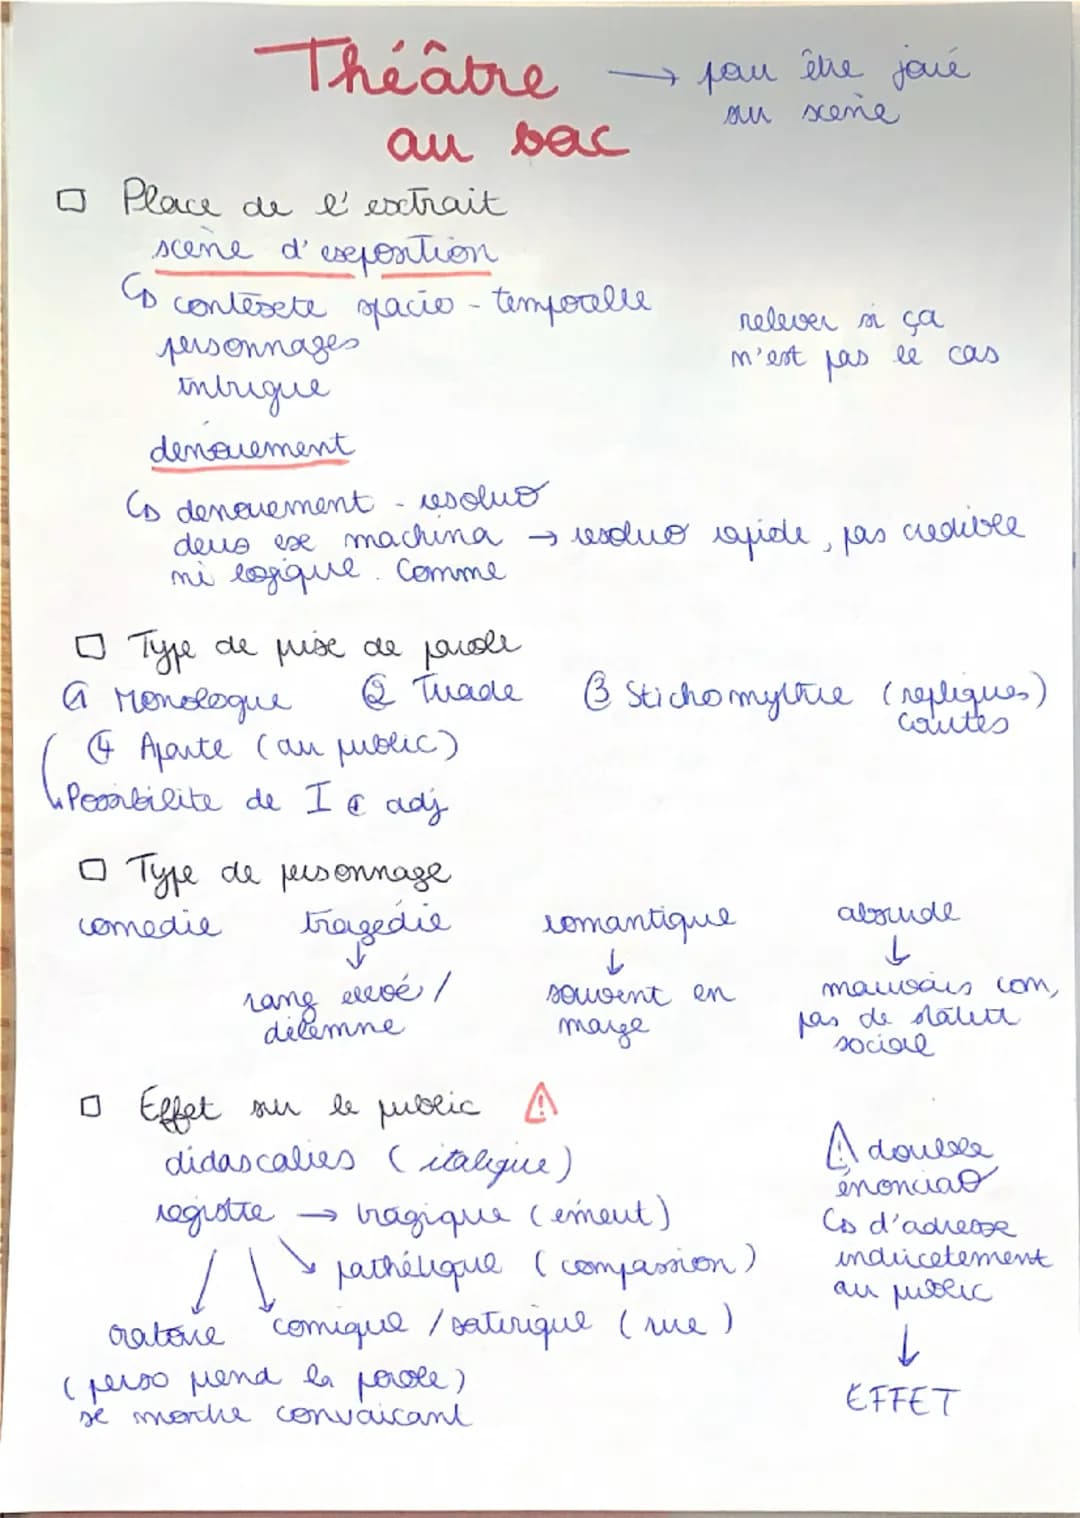 Théâtre → pour être joué
au bac sur scène
□ Place de l'extrait
scène d'exposition
↳ contexte spacio-temporelle
personnages
intrigue
relever si ça
n'est pas le cas
denouement
↳ denouement - resoluo
deus ex machina → resoluo rapide, pas credible
ni logique. Comme
□ Type de prise de parole
① Monologue ② Tirade ③ Stichomythie (repliques)
courtes
④ Aparte (au public)
↳ Possibilite de I © adj
□ Type de personnage
comedie tragedie romantique absurde
↓ ↓ ↓
rang elevé /
dilemne
souvent en
marge
mauvais com,
pas de statut
sociale
□ Effet sur le public ⚠
didascalies (italique)
registre → tragique (émeut)
↘ pathétique (compassion)
oratoire comique / satirique (rire)
(perso prend la parole)
se montre convaicant
⚠ double
énonciao
↳ d'adresse
indirectement
au public
↓
EFFET